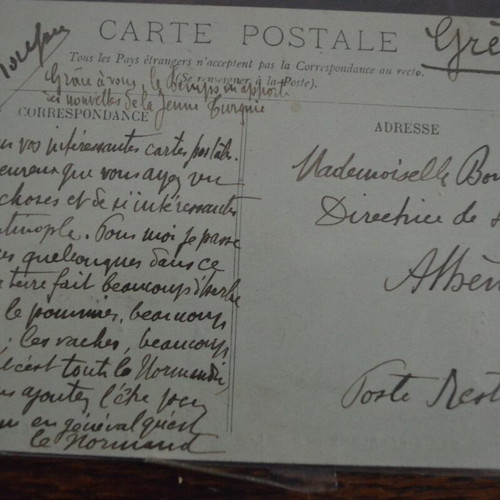 CARTE POSTALE
Grè
Tous les Pays étrangers n'acceptent pas la Correspondance au recto.
(Se renseigner à la Poste).
Grâce à vous, le Temps en apporte
des nouvelles de la Jeune Turquie
CORRESPONDANCE
ADRESSE
vos intéressantes cartes postales.
eureux que vous ayez vu
choses et de si intéressantes
tinople. Pour moi je passe
es quelconques dans ce
terre fait beaucoup d'herbe
le pommier, beaucoup
; les vaches, beaucoup
c'est toute la Normandie,
ajoutez l'être
en général qu'est
le Normand
Mademoiselle Bon
Directrice de
Athèn
Poste Rest